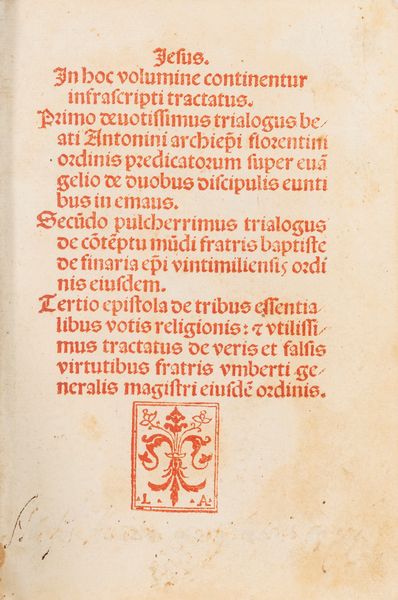 Jesus.
In hoc volumine continentur
infrascripti tractatus.
Primo deuotissimus trialogus be⸗
ati Antonini archiep̄i florentini
ordinis predicatorum super euā
gelio de duobus discipulis eunti
bus in emaus.
Secūdo pulcherrimus trialogus
de cōtēptu mūdi fratris baptiste
de finaria ep̄i vintimiliensis ordi
nis eiusdem.
Tertio epistola de tribus essentia⸗
libus votis religionis: ⁊ vtilissi⸗
mus tractatus de veris et falsis
virtutibus fratris vmberti ge⸗
neralis magistri eiusdē ordinis.
L A